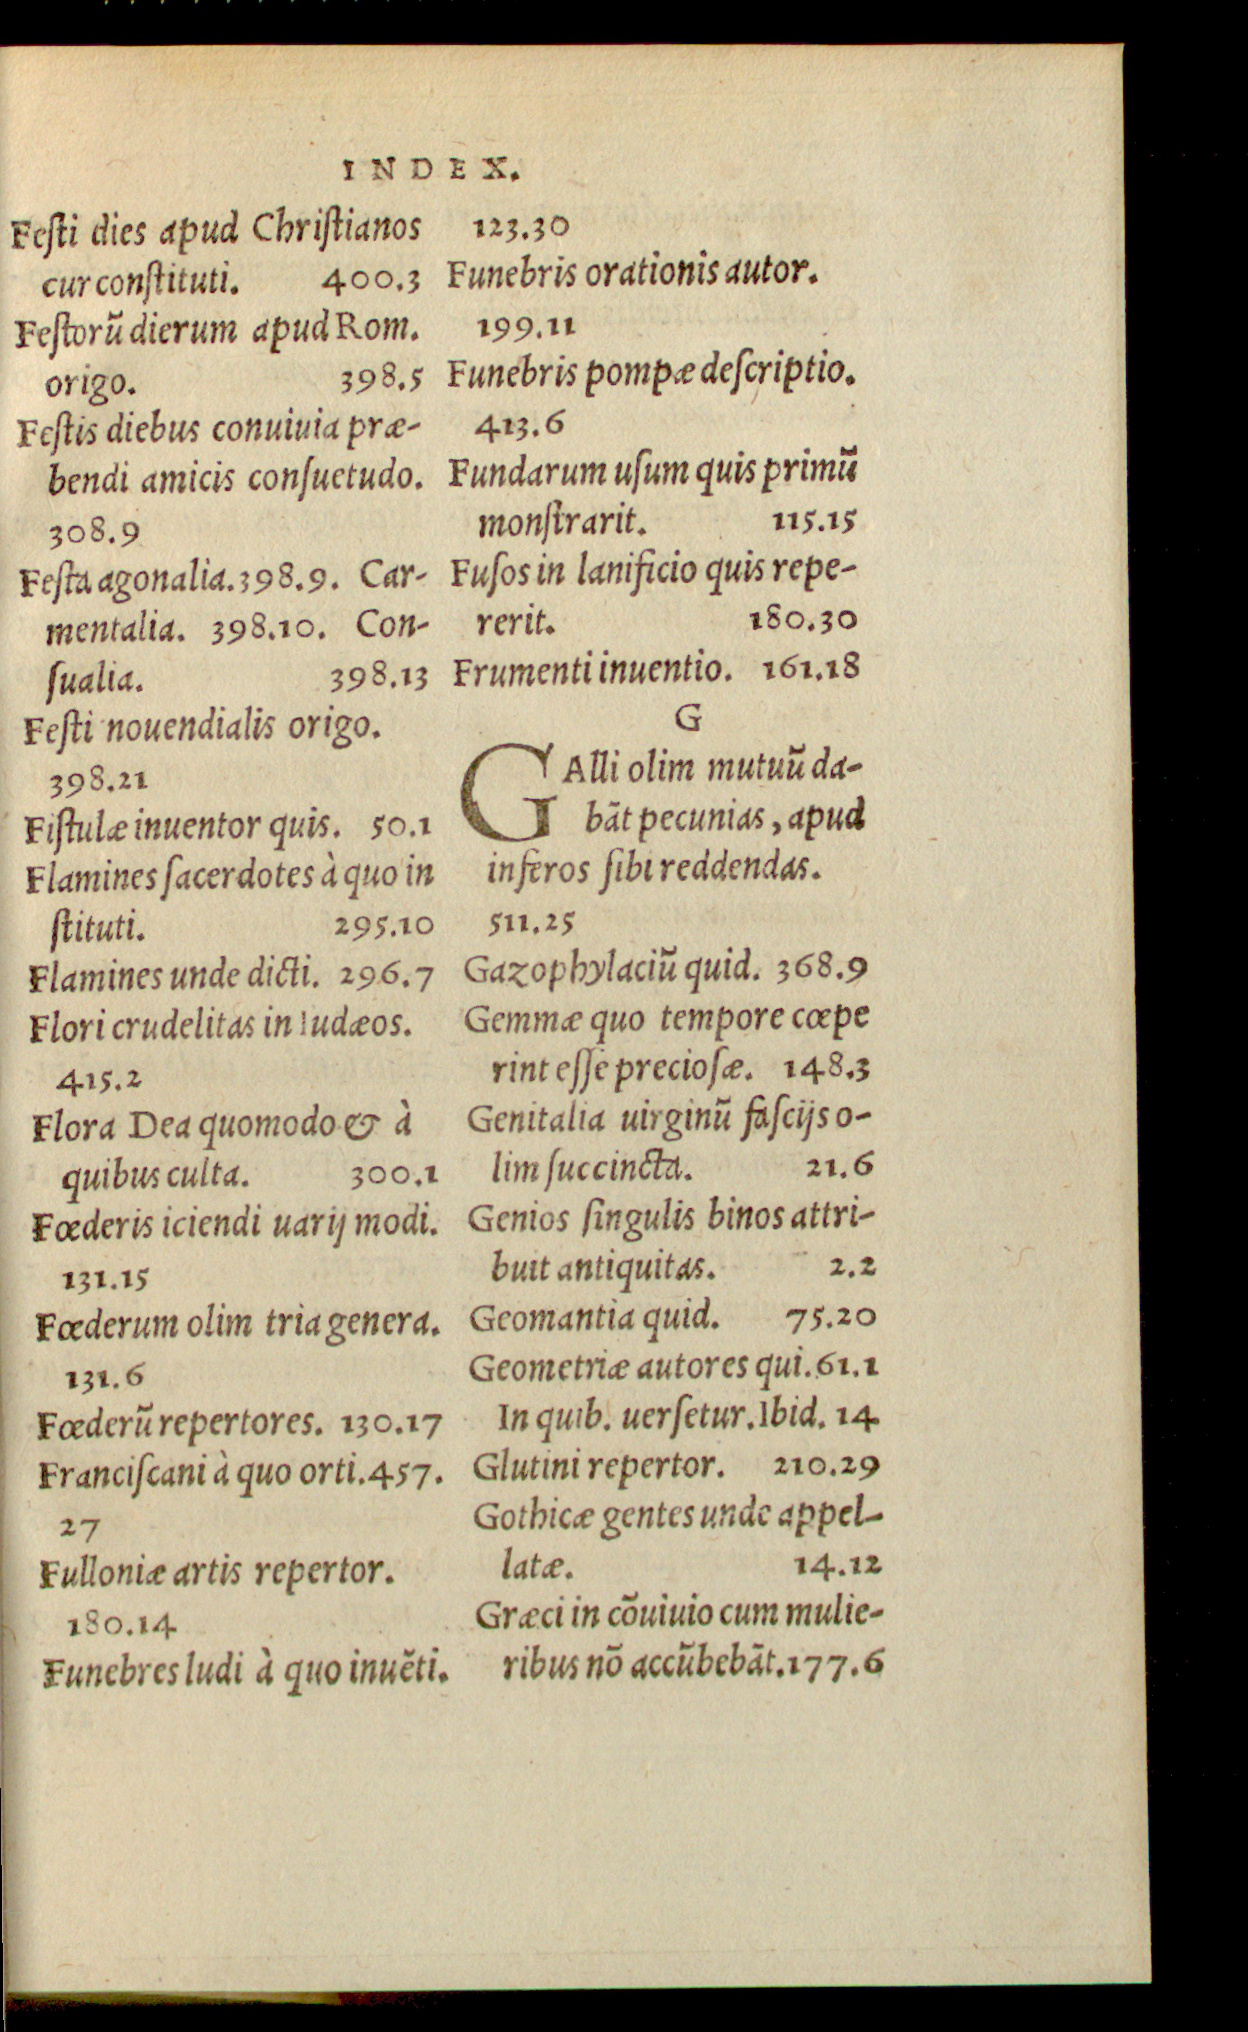 INDEX.
Feſti dies apud Chriſtianos
cur conſtituti. 400.3
Feſtorũ dierum apud Rom.
origo. 398.5
Feſtis diebus conuiuia præ-
bendi amicis conſuetudo.
308.9
Feſta agonalia. 398.9. Car-
mentalia. 398.10. Con-
ſualia. 398.13
Feſti nouendialis origo.
398.21
Fiſtulæ inuentor quis. 50.1
Flamines ſacerdotes à quo in
ſtituti. 295.10
Flamines unde dicti. 296.7
Flori crudelitas in Iudæos.
415.2
Flora Dea quomodo & à
quibus culta. 300.1
Fœderis iciendi uarij modi.
131.15
Fœderum olim tria genera.
131.6
Fœderũ repertores. 130.17
Franciſcani à quo orti. 457.
27
Fulloniæ artis repertor.
180.14
Funebres ludi à quo inuẽti.
123.30
Funebris orationis autor.
199.11
Funebris pompæ deſcriptio.
413.6
Fundarum uſum quis primũ
monſtrarit. 115.15
Fuſos in lanificio quis repe-
rerit. 180.30
Frumenti inuentio. 161.18
G
GAlli olim mutuũ da-
bãt pecunias, apud
inferos ſibi reddendas.
511.25
Gazophylaciũ quid. 368.9
Gemmæ quo tempore cœpe
rint eſſe precioſæ. 148.3
Genitalia uirginũ faſcijs o-
lim ſuccincta. 21.6
Genios ſingulis binos attri-
buit antiquitas. 2.2
Geomantia quid. 75.20
Geometriæ autores qui. 61.1
In quib. uerſetur. Ibid. 14
Glutini repertor. 210.29
Gothicæ gentes unde appel-
latæ. 14.12
Græci in cõuiuio cum mulie-
ribus nõ accũbebãt. 177.6